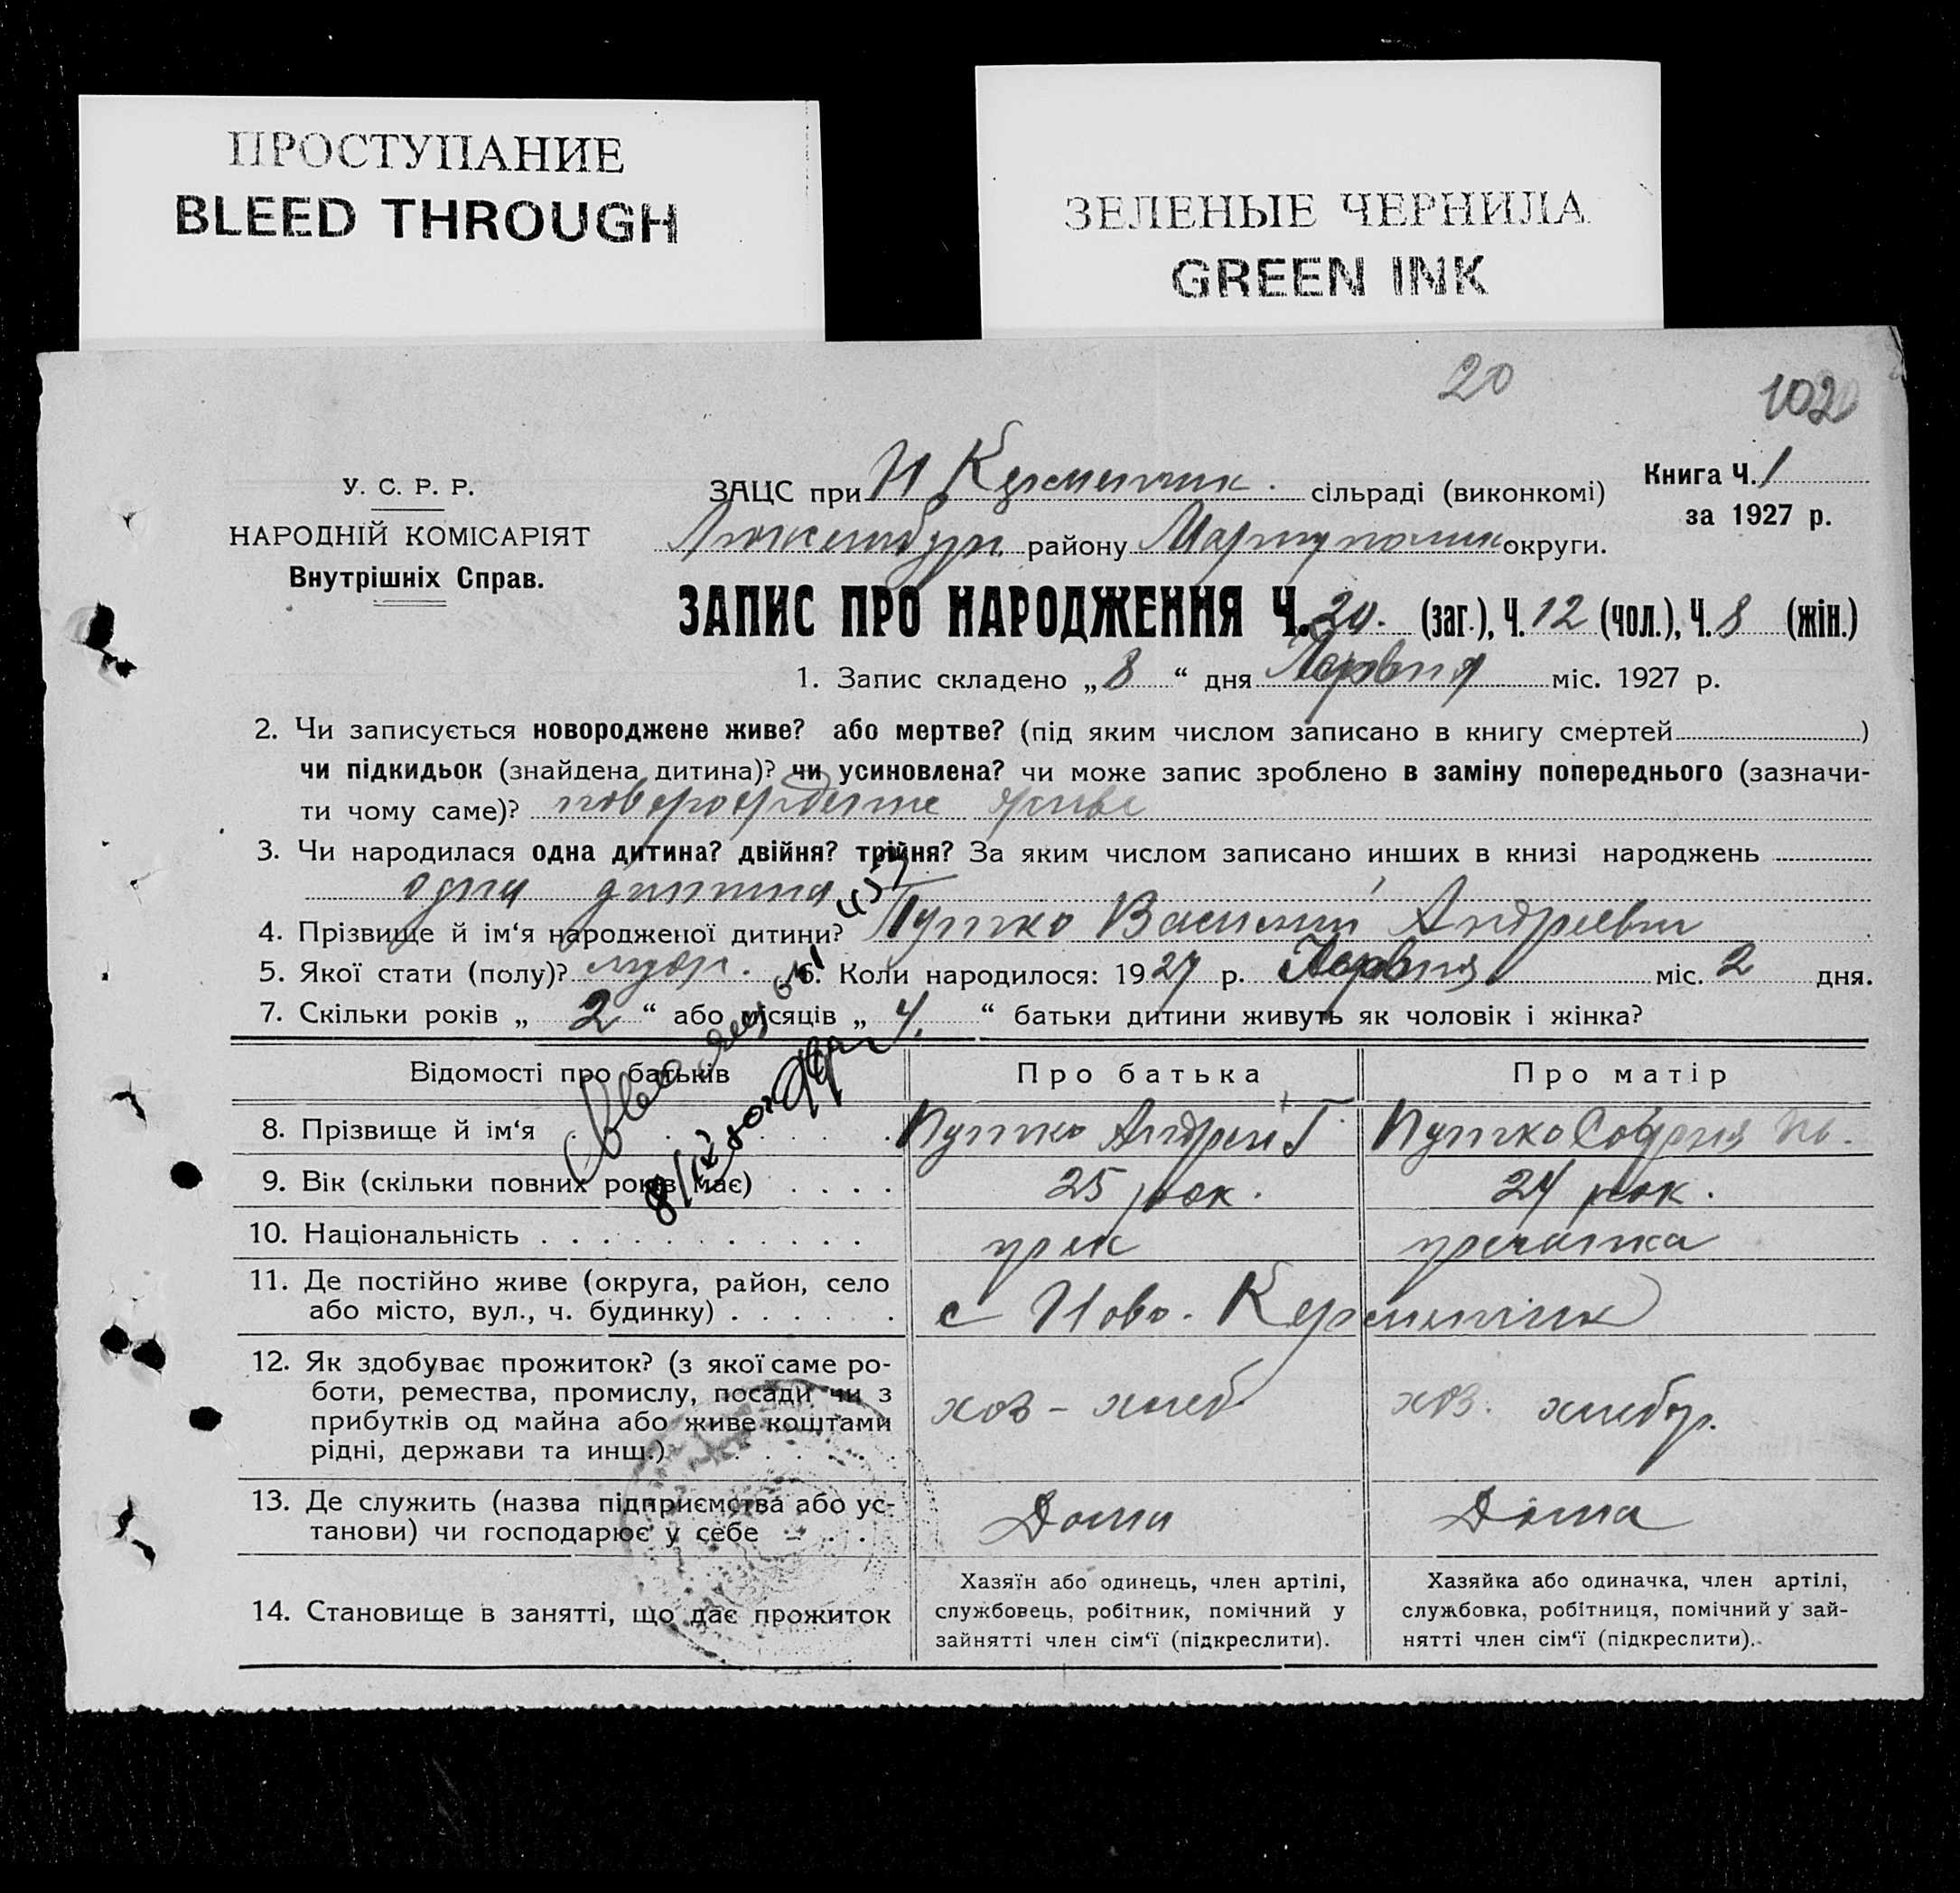 ПРОСТУПАНИЕ
BLEED THROUGH
ЗЕЛЕНЫЕ ЧЕРНИЛА
GREEN INK
20
102
У. С. Р. Р.
НАРОДНІЙ КОМІСАРІЯТ
Внутрішніх Справ.
ЗАЦС при Н Керменчик. сільраді (виконкомі)
Книга Ч. 1
за 1927 р.
району Маріупольськ округи.
ЗАПИС ПРО НАРОДЖЕННЯ Ч. 20. (заг.), Ч. 12 (чол.), Ч. 8 (жін.)
1. Запис складено „ 8 “ дня Червня міс. 1927 р.
2. Чи записується новороджене живе? або мертве? (під яким числом записано в книгу смертей )
чи підкидьок (знайдена дитина)? чи усиновлена? чи може запис зроблено в заміну попереднього (зазначи-
ти чому саме)? новорождене живе
3. Чи народилася одна дитина? двійня? трійня? За яким числом записано инших в книзі народжень
одна дитина
4. Прізвище й ім‘я народженої дитини? Пупко Василий Андреевич
5. Якої стати (полу)? муж. 6. Коли народилося: 1927 р. Червня міс. 2 дня.
7. Скільки років „ 2 “ або місяців „ 4. “ батьки дитини живуть як чоловік і жінка?
Відомості про батьків
Про батька
Про матір
8. Прізвище й ім‘я . . . . . .
Андрей Г.
София
9. Вік (скільки повних років має) . . . .
25 рок.
24 рок.
10. Національність . . . . . . . . . . .
грек
гречанка
11. Де постійно живе (округа, район, село
або місто, вул., ч. будинку) . . . . . .
с Ново-Керменчик
12. Як здобуває прожиток? (з якої саме ро-
боти, ремества, промислу, посади чи з
прибутків од майна або живе коштами
рідні, держави та инш.) . . . . .
хоз - хлеб
хоз. хлебор.
13. Де служить (назва підприємства або ус-
танови) чи господарює у себе . . . .
Дома
Дома
14. Становище в занятті, що дає прожиток
Хазяїн або одинець, член артілі,
службовець, робітник, помічний у
зайнятті член сім‘ї (підкреслити).
Хазяйка або одиначка, член артілі,
службовка, робітниця, помічний у зай-
нятті член сім‘ї (підкреслити).